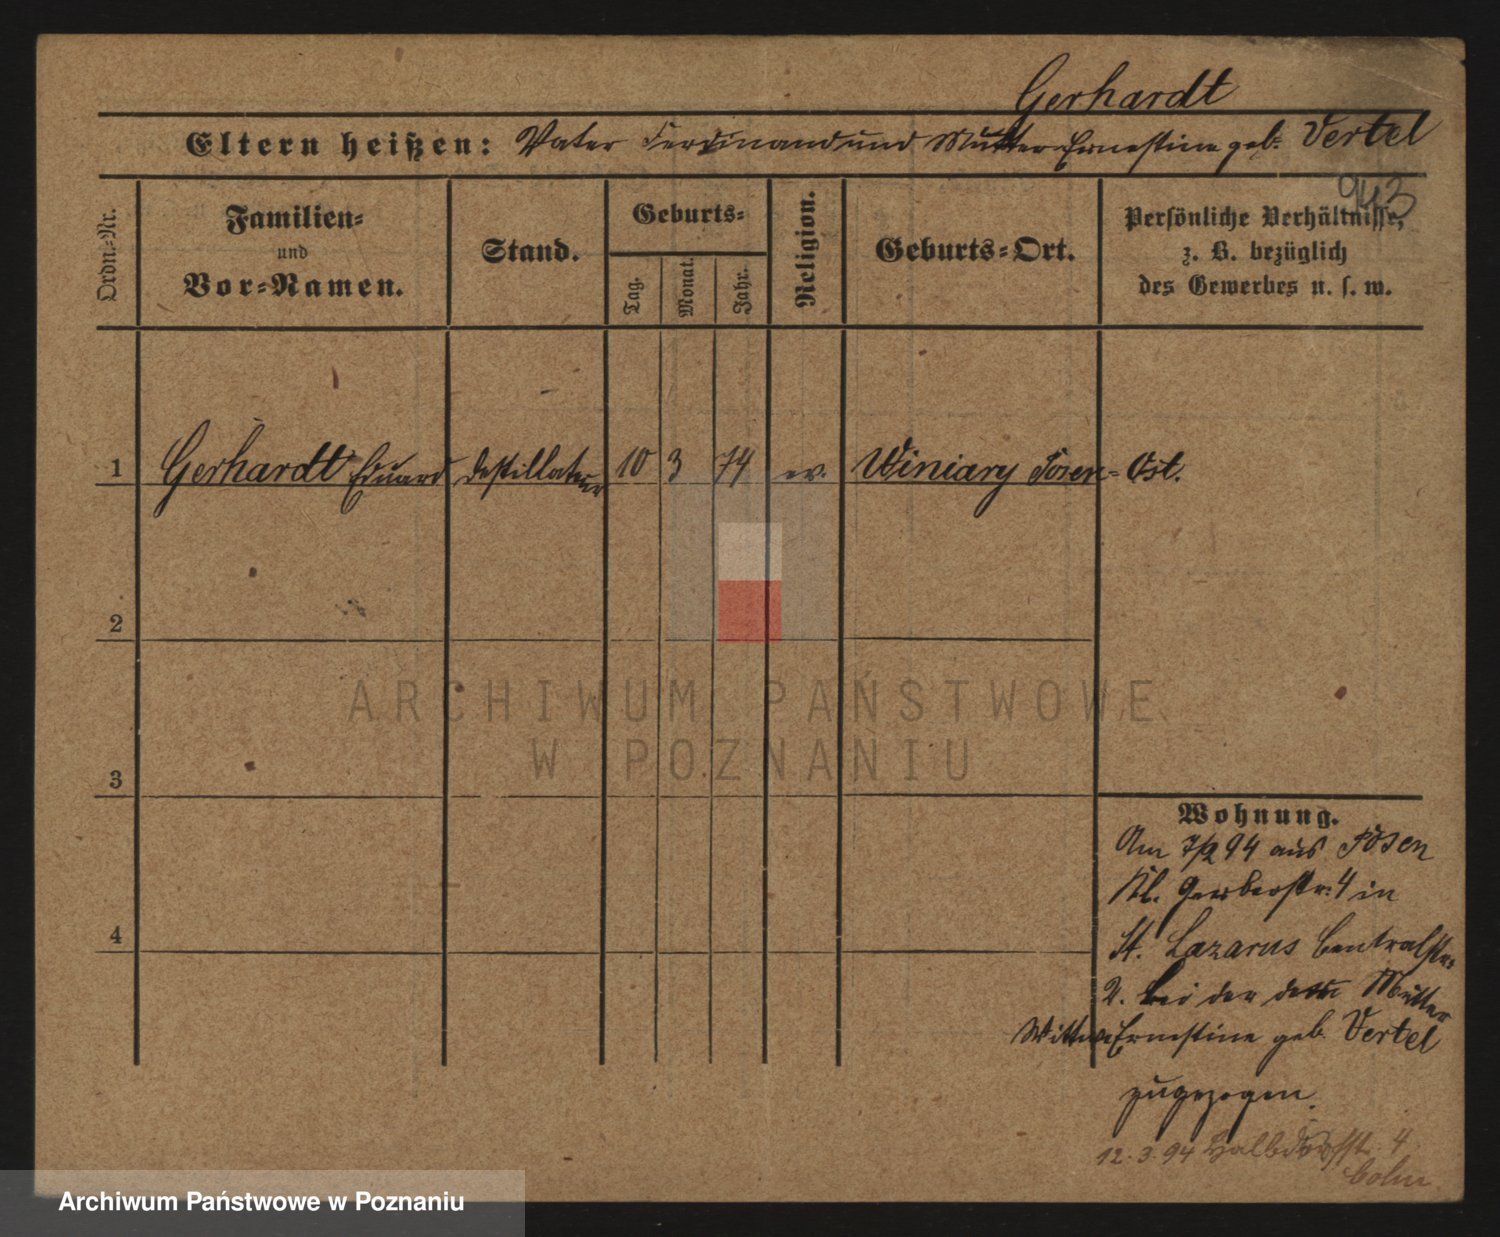 Gerhardt
Eltern heißen: Vater Ferdinand und Mutter Ernestine geb. Vertel
943
Ordn.-Nr.
Familien- und Vor-Namen.
Stand.
Geburts-
Tag. Monat. Jahr.
Religion.
Geburts-Ort.
Persönliche Verhältnisse,
z. B. bezüglich
des Gewerbes u. s. w.
1 Gerhardt Eduard Destillateur 10 3 74 ev. Winiary Posen-Ost.
2
3
4
Wohnung.
Am 7/2 94 aus Posen
Kl. Gerberstr. 4 in
St. Lazarus Centralstr.
2. bei der Mutter
Wittwe Ernestine geb. Vertel
zugezogen.
12.3.94 Halbdorfstr. 4
ARCHIWUM PAŃSTWOWE
W POZNANIU
Archiwum Państwowe w Poznaniu